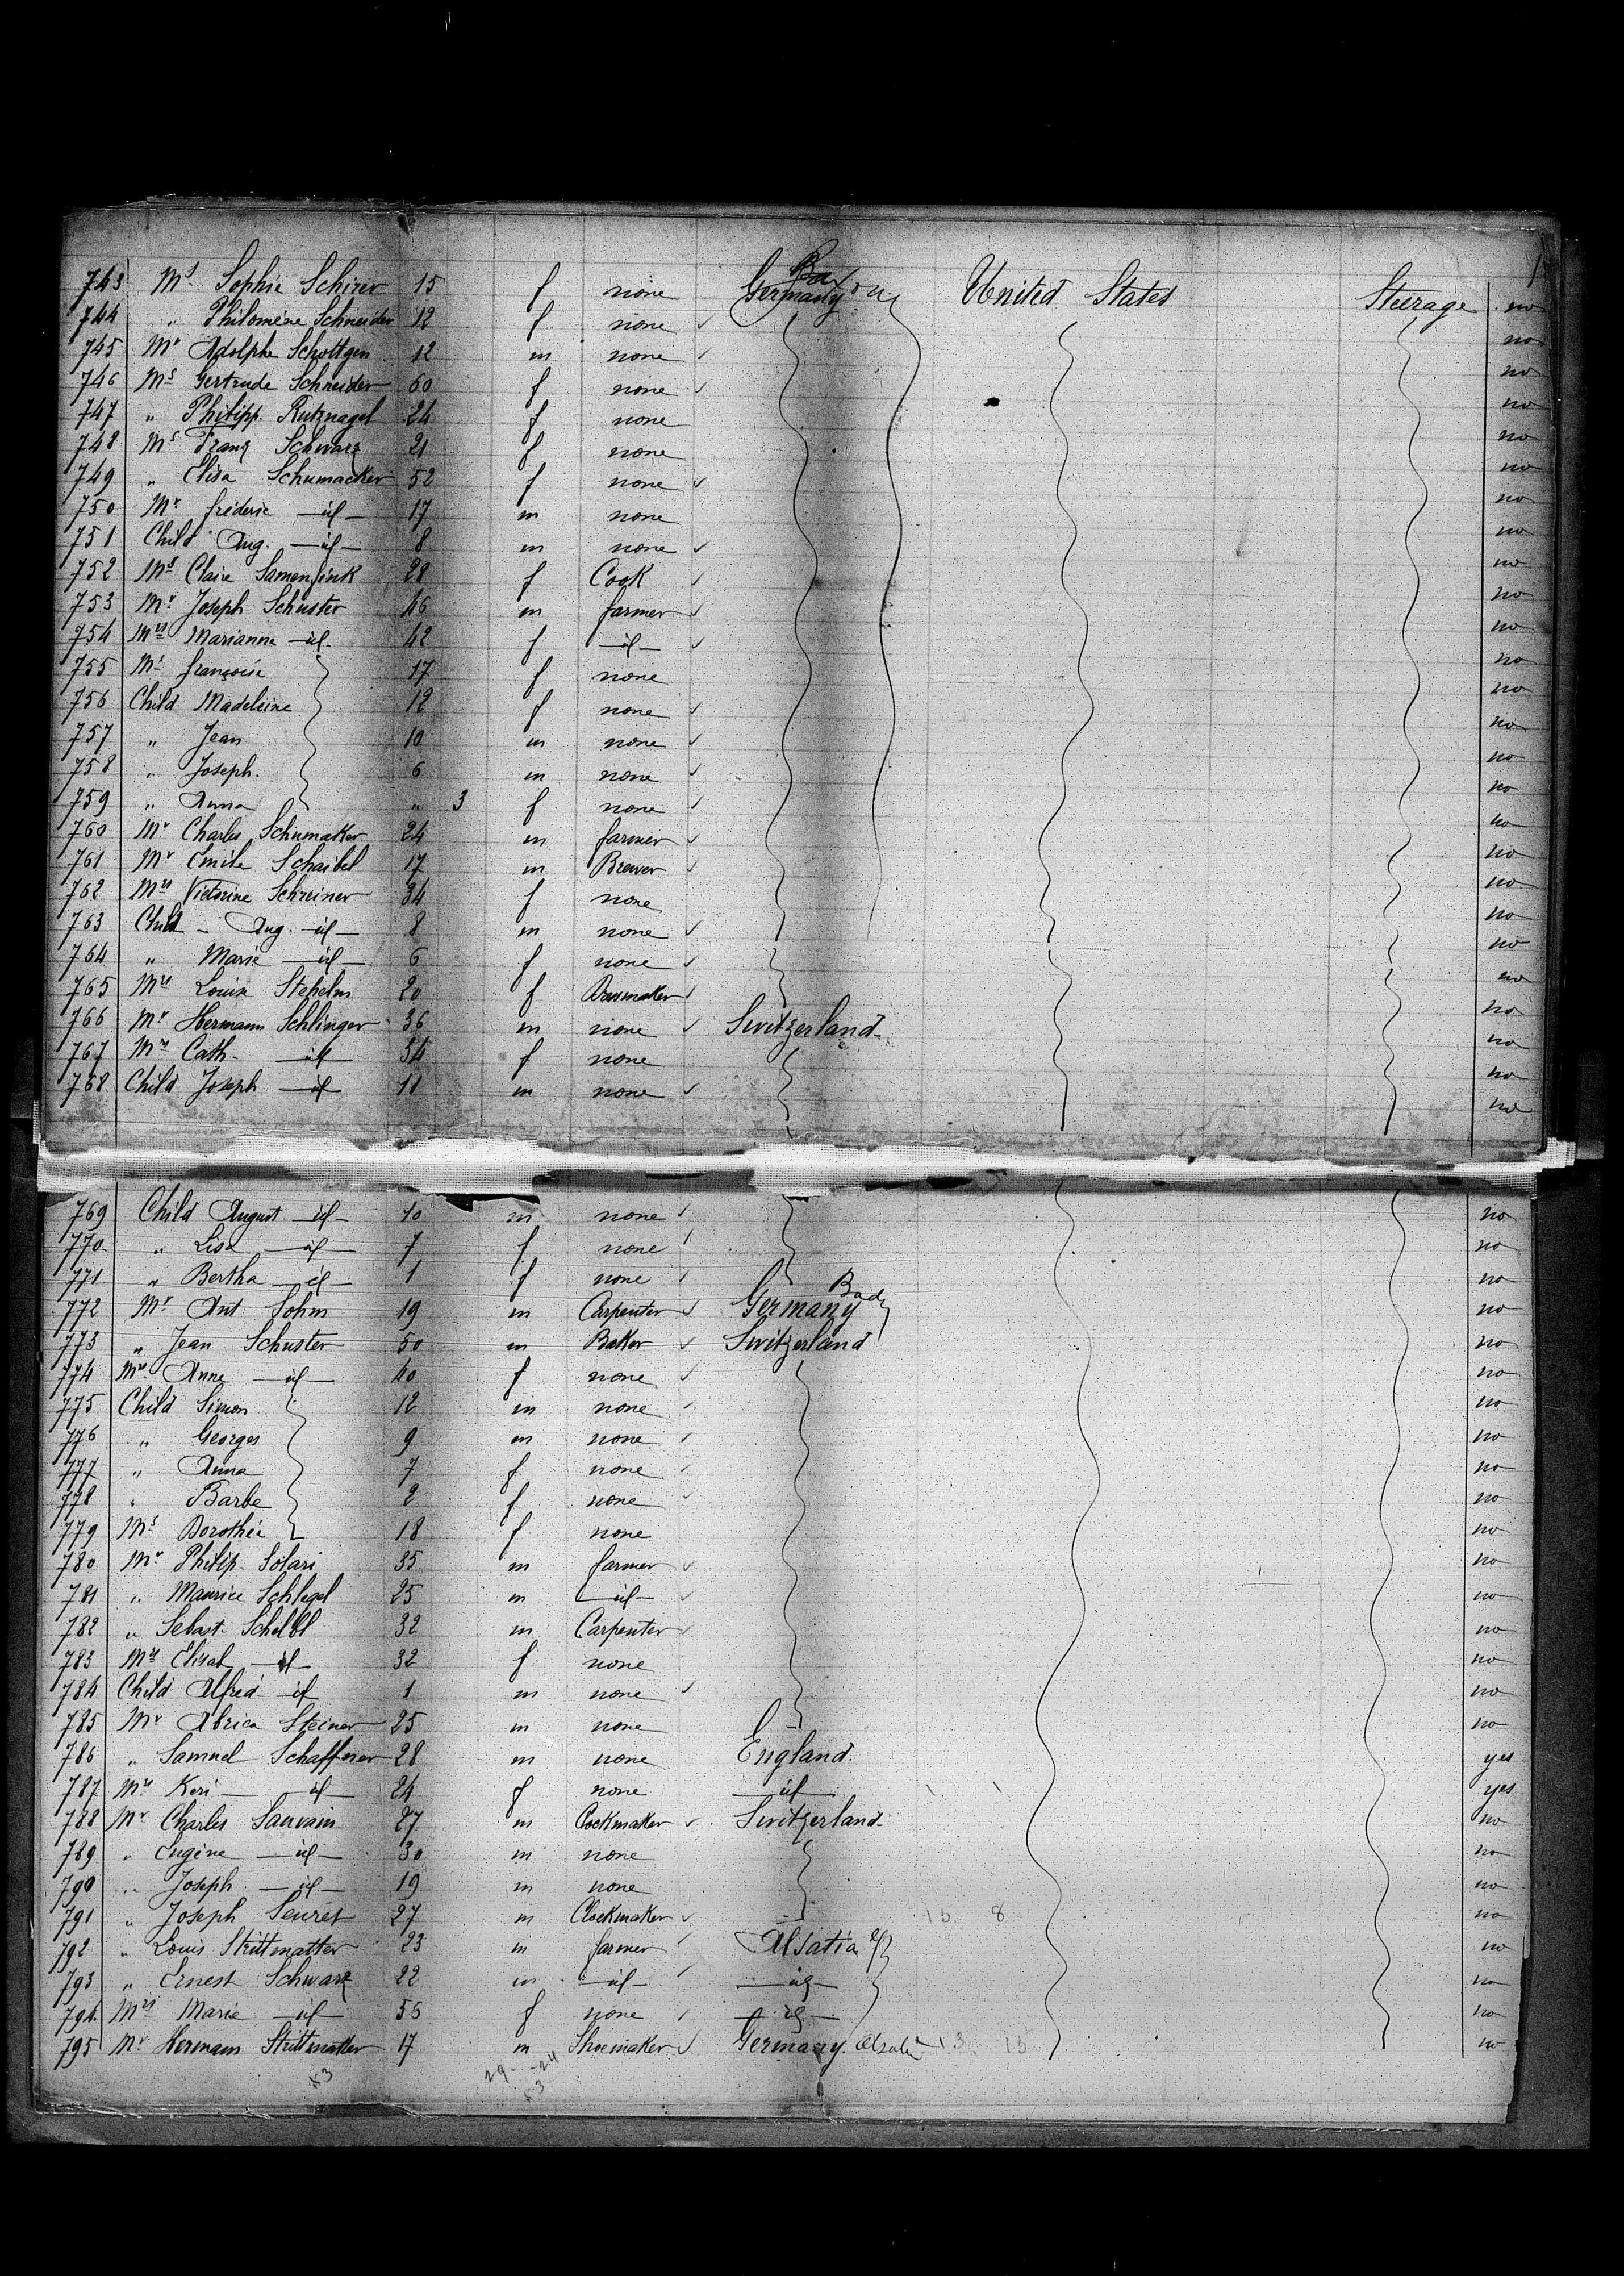 743 Ms Sophie Schirer 15 f none Germany United States Steerage no
744 " Philomène Schneider 12 f none no
745 Mr Adolphe Schottgen 12 m none no
746 Ms Gertrude Schneider 60 f none no
747 " Philipp. Rutznagel 24 f none no
748 Ms Franz Schwarz 21 f none no
749 " Elisa Schumacker 52 f none no
750 Mr frédéric —id— 17 m none no
751 Child Aug. —id— 8 m none no
752 Ms Claire Samenfink 28 f Cook no
753 Mr Joseph Schuster 46 m farmer no
754 Mrs Marianna —id— 42 f —id— no
755 Ms françoise 17 f none no
756 Child Madeleine 12 f none no
757 " Jean 10 m none no
758 " Joseph. 6 m none no
759 " Anna " 3 f none no
760 Mr Charles Schumaker 24 m farmer no
761 Mr Emile Schaibel 17 m Brewer no
762 Mrs Victorine Schreiner 34 f none no
763 Child - Aug. —id— 8 m none no
764 " Marie —id— 6 f none no
765 Mrs Louise Stehelin 20 f Dressmaker no
766 Mr Hermann Schlinger 36 m none Switzerland no
767 Mrs Cath- —id— 34 f none no
768 Child Joseph —id— 11 m none no
769 Child August —id— 10 m none no
770 " Lisa —id— 7 f none no
771 " Bertha —id— 1 f none no
772 Mr Ant Sohm 19 m Carpenter Germany Bad no
773 " Jean Schuster 50 m Baker Switzerland no
774 Mrs Anne —id— 40 f none no
775 Child Simon 12 m none no
776 " Georges 9 m none no
777 " Anna 7 f none no
778 " Barbe 2 f none no
779 Ms Dorothée 18 f none no
780 Mr Philip. Solari 35 m farmer no
781 " Maurice Schlegel 25 m —id— no
782 " Sebast. Schelbl 32 m Carpenter no
783 Mrs Elisab —id— 32 f none no
784 Child Alfred —id 1 m none no
785 Mr Steiner 25 m none no
786 " Samuel Schaffner 28 m none England. yes
787 Mrs Keri —id— 24 f none —id— yes
788 Mr Charles Sauvain 27 m Cockmaker Switzerland no
789 " Eugène —id— 30 m none no
790 " Joseph —id— 19 m none no
791 " Joseph Seuret 27 m Clockmaker 15 8 no
792 " Louis Strittmatter 23 m farmer Alsatia no
793 " Ernest Schwarz 22 m —id— —id— no
794 Mrs Marie —id— 56 f none —id— no
795 Mr Hermann Strittmatter 17 m Shoemaker Germany. 13 15 no
29 - 24